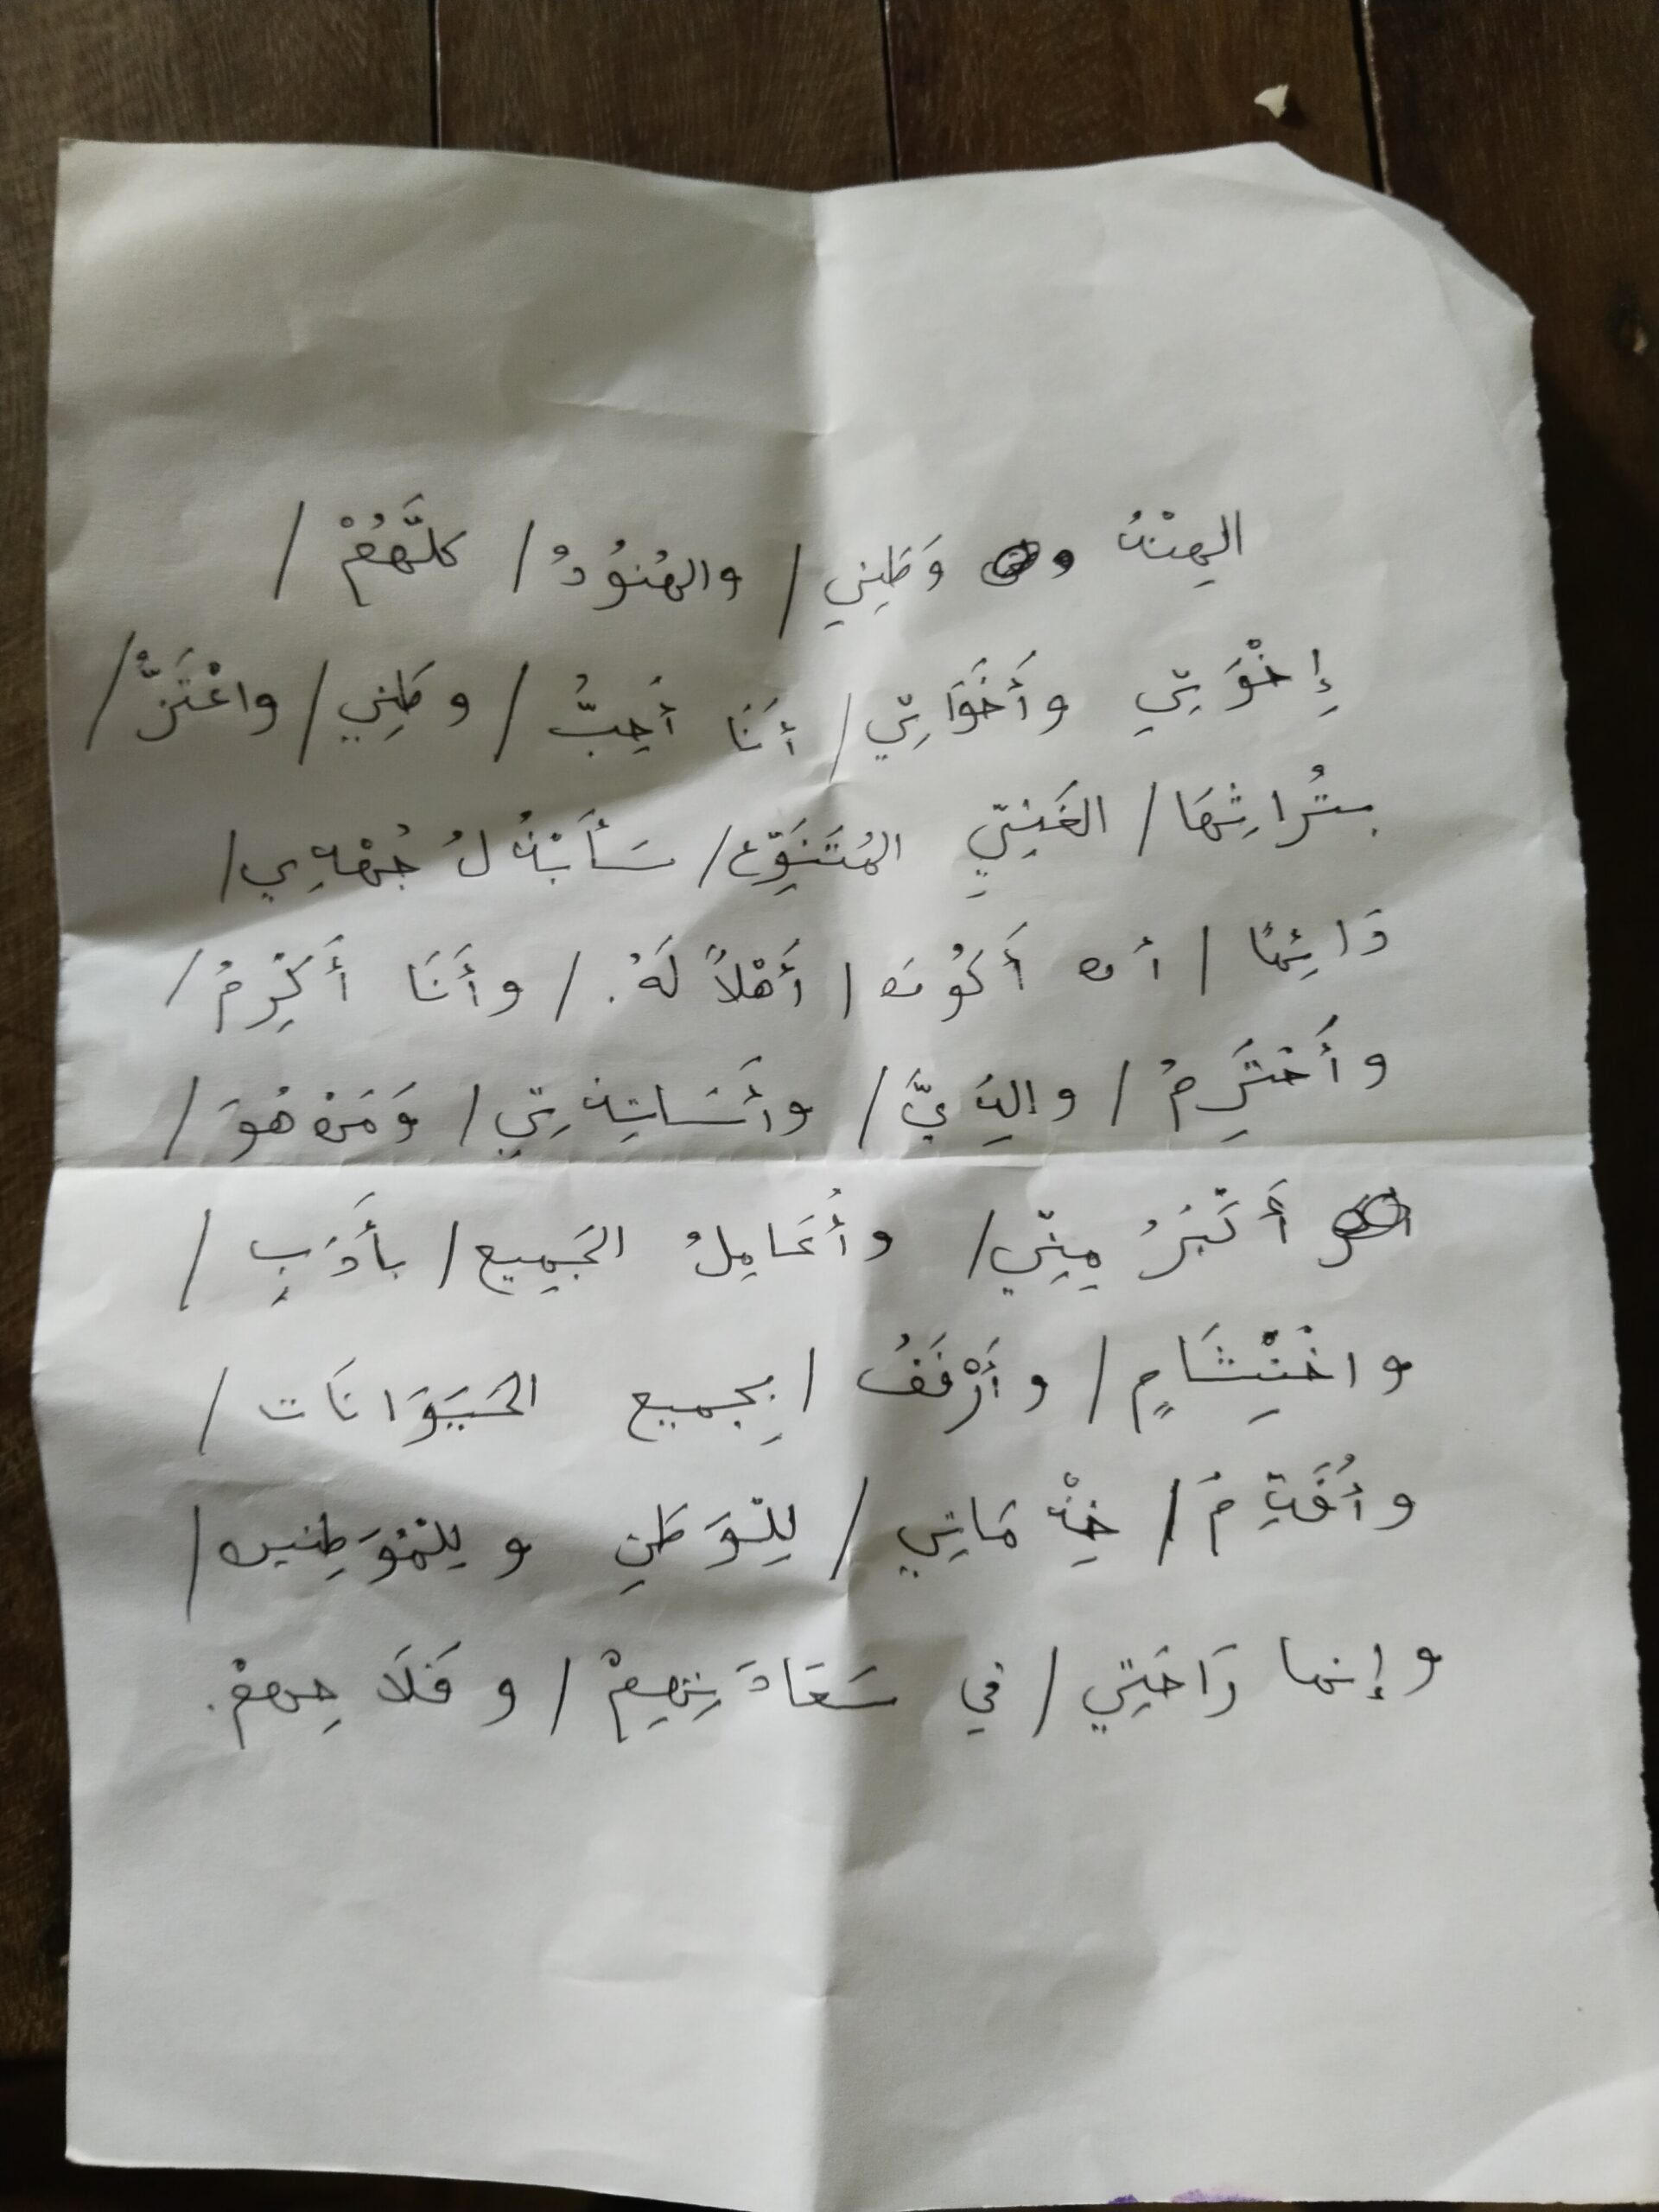 الهِنْدُ و وَطَنِي / والهُنُوْدُ / كلَّهُمْ /
إِخْوَتِي وأَخَوَاتِي / أنَا أُحِبُّ / وطَنِي / واعْتَزُّ /
بتُرَاثِهَا / الغَنِيِّ المُتَنَوِّع / سَأَبْذُلُ جُهْدِي /
دَائِمًا / أن أَكُوْنَ / أَهْلاً لَهُ. / وأَنَا أَكْرِمُ /
وأَحْتَرِمُ / والِدَيَّ / وأسَاتِذَتِي / وَمَنْ هُوَ /
أَكْبَرُ مِنِّي / وأُعَامِلُ الجَمِيع / بأَدَبٍ /
واحْتِشَامٍ / وأَرْفَقُ / بِجميع الحَيَوَانَات /
وأُقَدِّمُ / خِدْمَاتِي / لِلْوَطَنِ ولِلْمُوَطِنين /
وإنما رَاحَتِي / في سَعَادَتِهِمْ / وفَلَاحِهمْ.